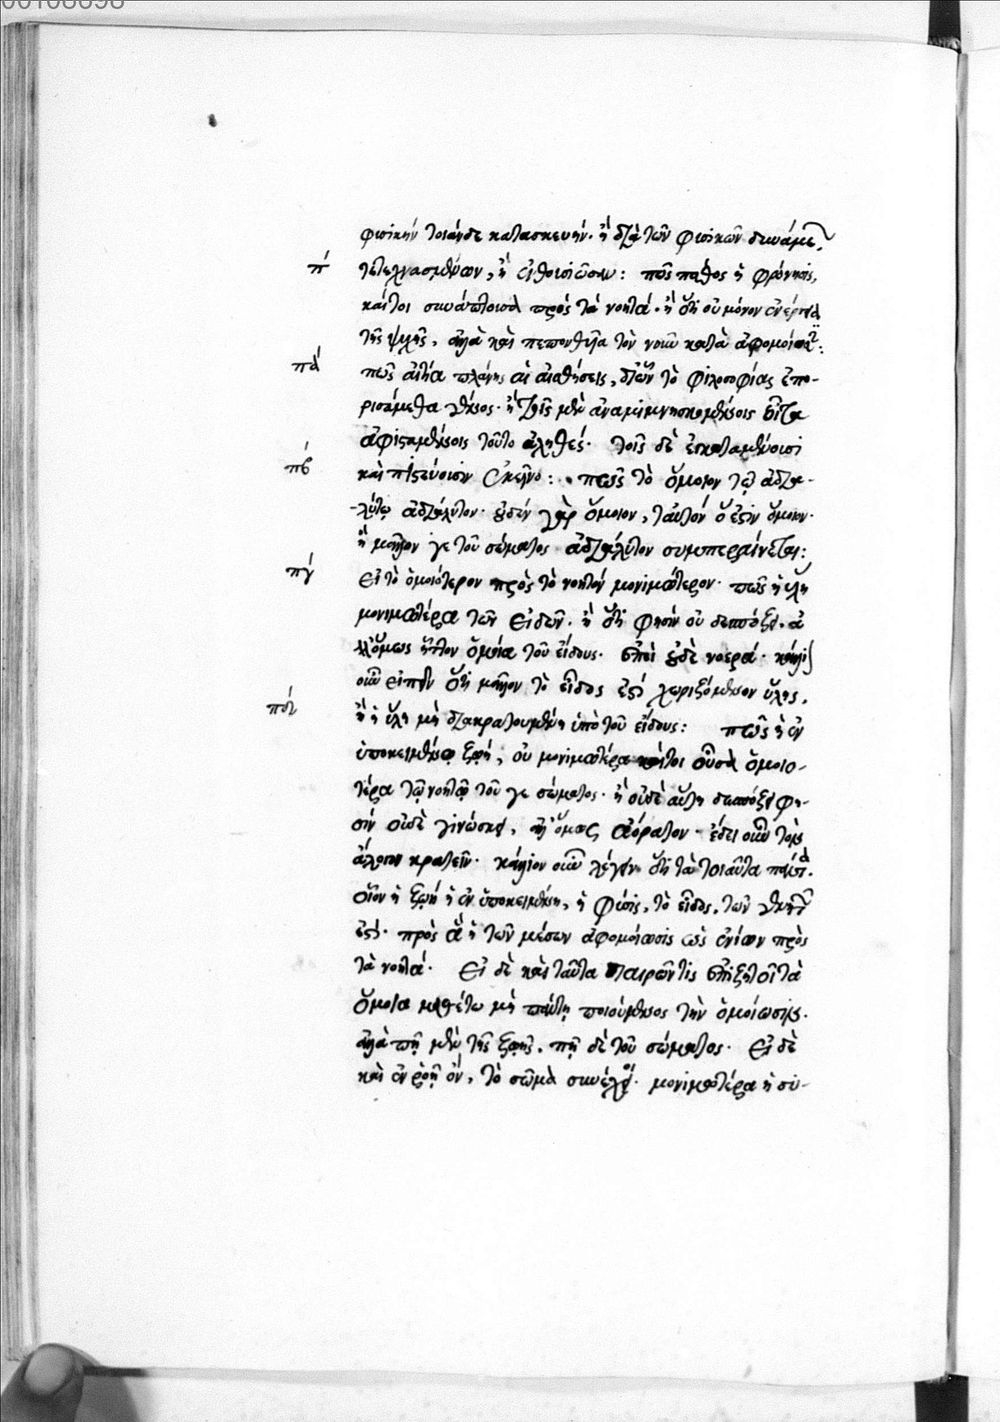 00108898
φυσικὴν τοιάνδε κατασκευήν. ἢ διὰ τῶν φυσικῶν δυνάμε
π΄ τετεχνασμένων, ἢ ἐνθουσιῶσαν: πῶς πάθος ἡ φρόνησις,
καίτοι συνάπτουσα πρὸς τὰ νοητά. ἢ ὅτι οὐ μόνον ἐνέργεια
τῆς ψυχῆς, ἀλλὰ καὶ πεπονθυῖα τὸν νοῦν κατὰ ἀφομοίωσιν:
πα΄ πῶς αἰτία πλάνης αἱ αἰσθήσεις, δι' ὧν τὸ φιλοσοφίας ἐπο-
ρισάμεθα γένος. ἢ τοῖς μὲν ἀναμιμνησκομένοις εἶτα
ἀφισταμένοις τοῦτο ἀληθές. τοῖς δὲ ἐγκαταμένουσι
πβ΄ καὶ πιστεύουσιν ἐκεῖνο: πῶς τὸ ὅμοιον τῷ ἀδια-
-λύτῳ ἀδιάλυτον. οὐδὲν γὰρ ὅμοιον, ταὐτὸν ᾧ ἐστὶν ὅμοιον.
ἢ μᾶλλον γε τοῦ σώματος ἀδιάλυτον συμπεραίνεται:
πγ΄ εἰ τὸ ὁμοιότερον πρὸς τὸ νοητὸν μονιμώτερον. πῶς ἡ ὕλη
μονιμωτέρα τῶν εἰδῶν. ἢ ὅτι φησὶν οὐ δεσπόζει. ἀ
λλ' ὅμως ἧττον ὁμοία τοῦ εἴδους. ἐπεὶ οὐδὲ νοερά. κάλλι
οὖν εἰπεῖν ὅτι μᾶλλον τὸ εἶδος ἐστὶ χωριζόμενον ὕλης,
πδ΄ ἢ ἡ ὕλη μὴ διακρατουμένη ὑπὸ τοῦ εἴδους: πῶς ἡ ἐν
ὑποκειμένῳ ζωή, οὐ μονιμωτέρα καίτοι οὖσα ὁμοιο-
τέρα τῷ νοητῷ τοῦ γε σώματος. ἢ οὐδὲ αὕτη δεσπόζει φη-
σὶν οὐδὲ γινώσκει, ἀλλ' ὅμως ἀόρατον. ἔδει οὖν τοῖς
ἄλλοις κρατεῖν. κάλλιον οὖν λέγειν ὅτι τὰ τοιαῦτα πάντα.
οἷον ἡ ζωὴ ἡ ἐν ὑποκειμένῳ, ἡ φύσις, τὸ εἶδος, τῶν θνητῶν
ἐστί. πρὸς ἃ ἡ τῶν μέσων ἀφομοίωσις ὡς ἐνίων πρὸς
τὰ νοητά. εἰ δὲ καὶ ταῦτα παιρῶν τίς ἐπιζητοῖ τὰ
ὅμοια μαθέτω μὴ πάντῃ ποιούμενος τὴν ὁμοίωσιν.
ἀλλὰ πῇ μὲν τῆς ζωῆς, πῇ δὲ τοῦ σώματος. εἰ δὲ
καὶ ἐν ῥοῇ ὄν, τὸ σῶμα συνέχει. μονιμωτέρα ἡ σύ-